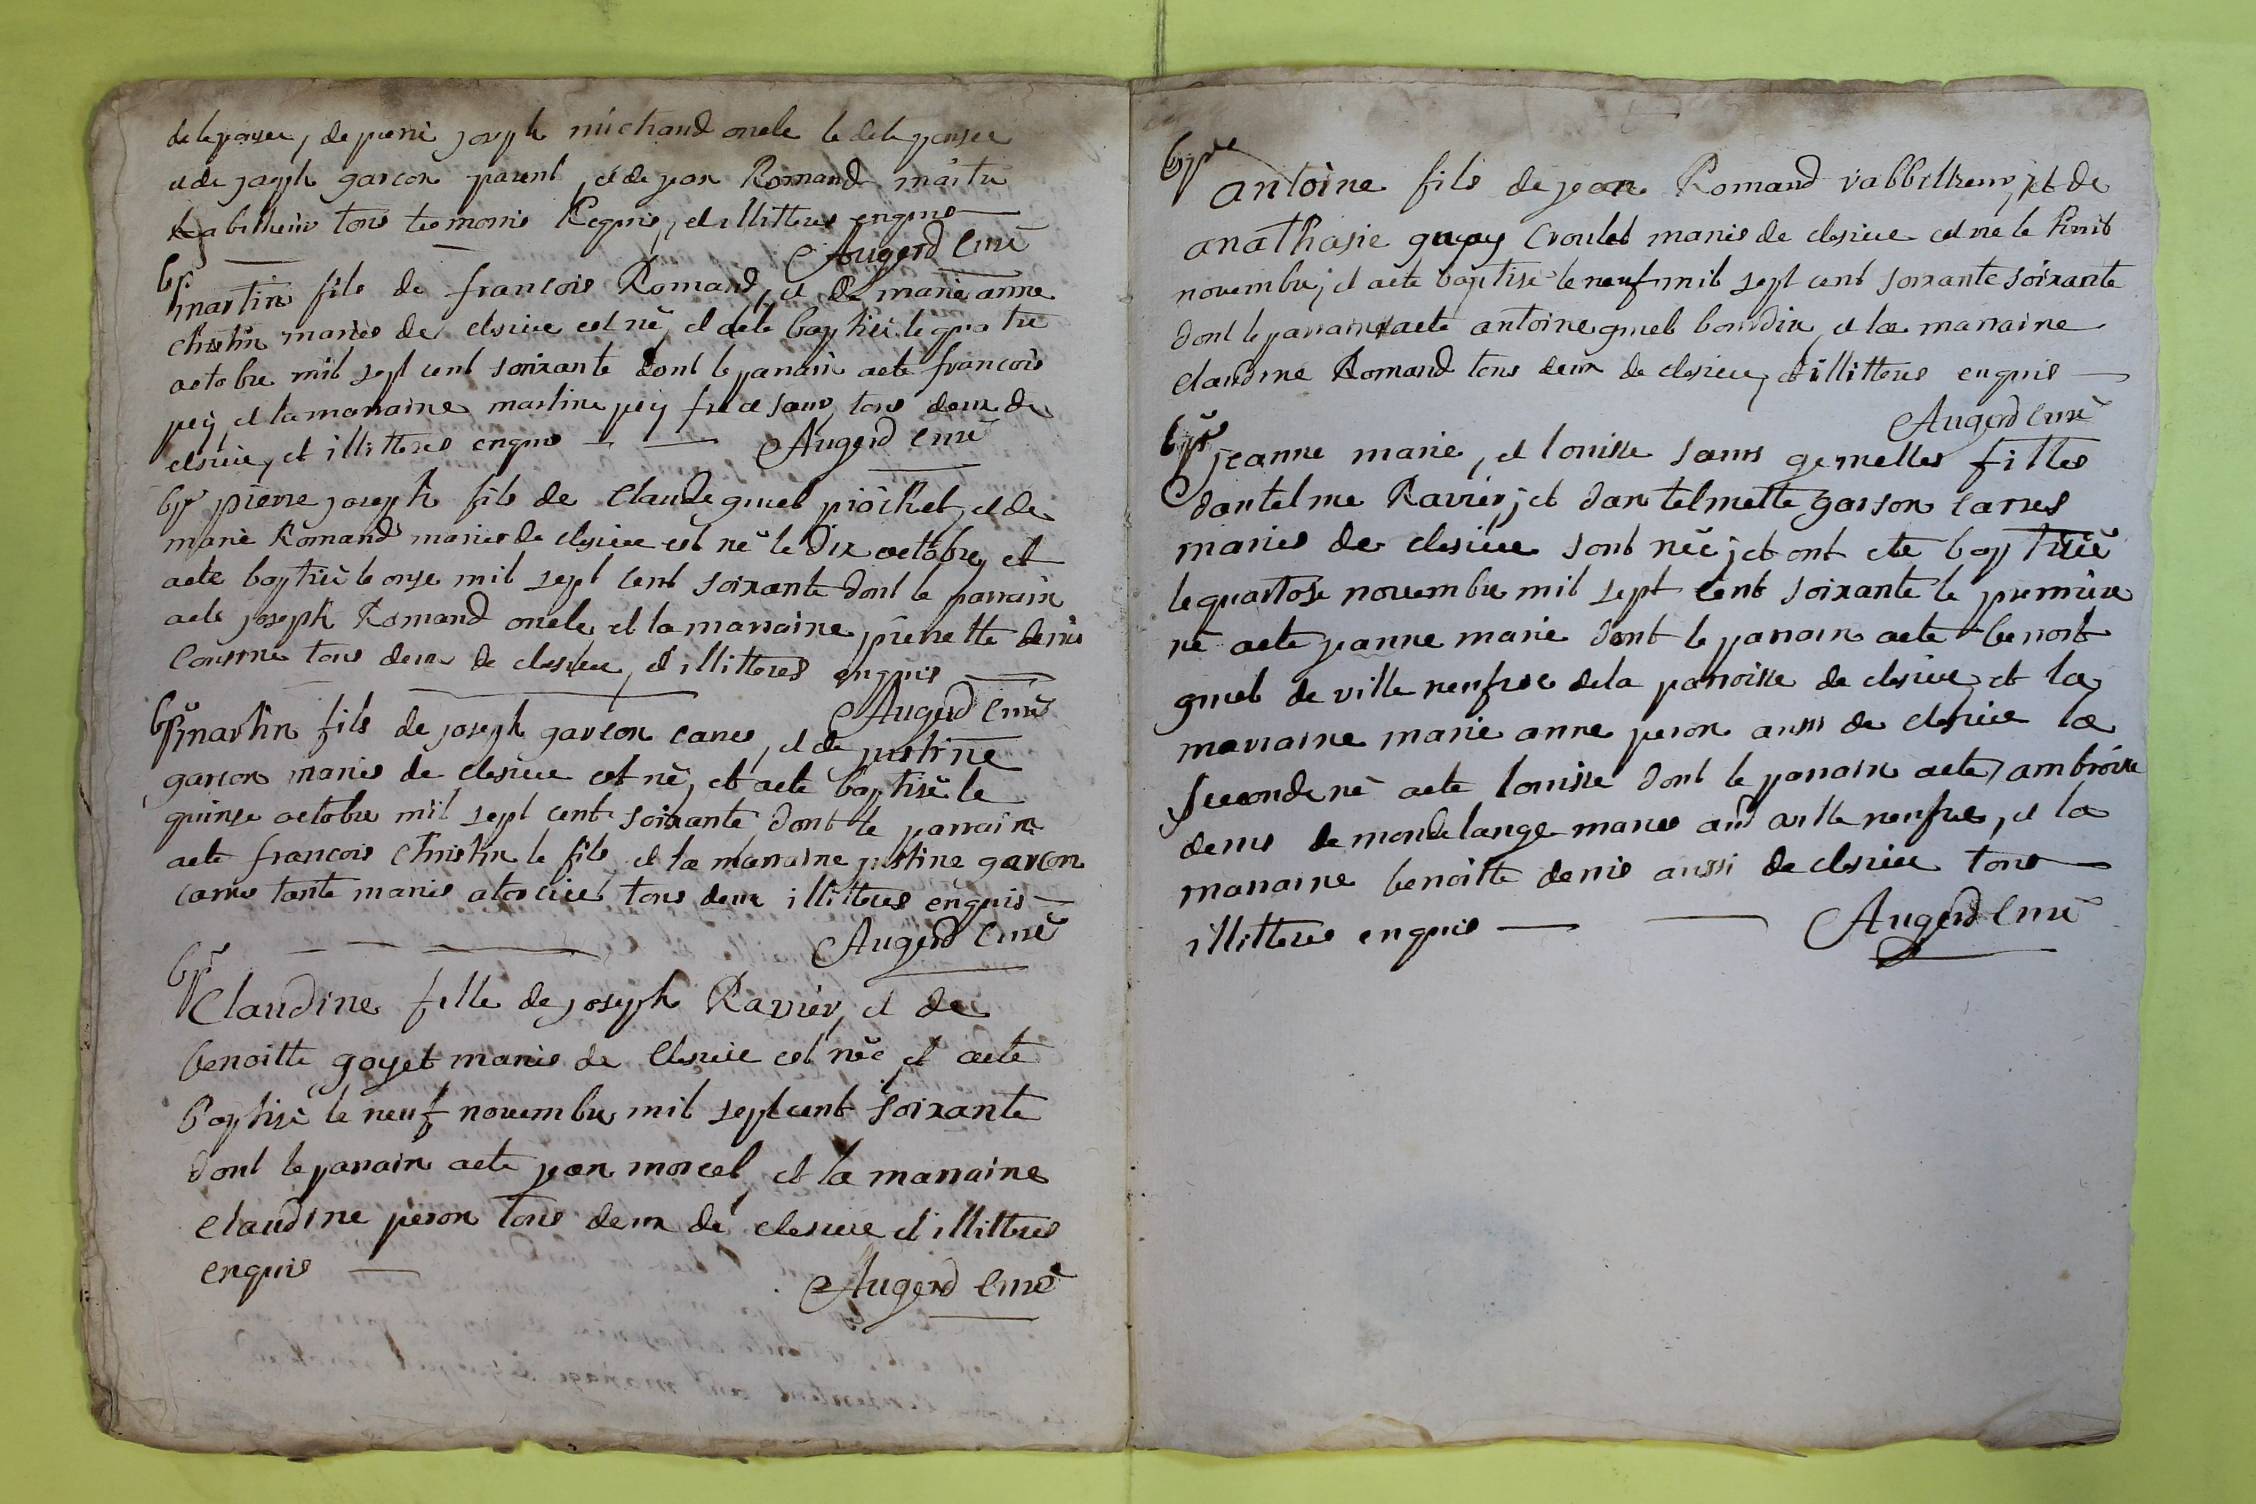 de lepouse, de pierre joseph michaud oncle le de lepouse
et de joseph garcon parent, et de jean Romand maitre
habilheur tous temoins Requis, et illitteres enquis
Augerd Curé
bp
martin fils de francois Romand, et de marie anne
christin maries de clesieu est né, et aete baptisé le quatre
octobre mil sept cent soixante dont le parrain aete francois
pey, et la marraine martine pey frere et soeur, tous deux de
clesieu, et illitteres enquis Augerd Curé
bp pierre joseph fils de Claude guiel piôchet, et de
marie Romand maries de clesieu est né le dix octobre, et
aete baptisé le onse mil sept cent soixante dont le parrain
aete joseph Romand oncle, et la marraine pierrette denis
Cousine tous deux de clesieu, et illitteres enquis
Augerd Curé
bp martin fils de joseph garcon carres, et de justine
garcon maries de clesieu est né, et aete baptisé le
quinse octobre mil sept cent soixante dont le parrain
aete francois christin le fils, et la marraine justine garcon
carres tante maries a torcieu tous deux illitteres enquis
Augerd Curé
bp
Claudine fille de joseph Ravier, et de
benoitte goyet maries de Clesieu est née, et aete
Baptisé le neuf novembre mil sept cent soixante
dont le parrain aete jean morcel, et la marraine
Claudine peron tous deux de clesieu et illitteres
enquis
Augerd Curé
bp
antoine fils de jean Romand rabbillieur, et de
anathasie guyy Croulet maries de clesieu est né le huit
novembre, et aete baptisé le neuf mil sept cent soixante soixante
dont le parrain aete antoine guiel bourdin, et la marraine
claudine Romand tous deux de clesieu, et illitteres enquis
Augerd Curé
bp
jeanne marie, et louisse soeurs gemelles filles
dantelme Ravier, et dantelmette garson carres
maries de clesieu sont née, et ont ete baptisée
le quatose novembre mil sept cent soixante la premiere
né aete jeanne marie dont le parrain aete benoit
guiel de ville neufve dela parroisse de clesieu, et la
marraine marie anne peron aussi de clesieu la
seconde né aete louisse dont le parrain aete ambroise
denis de mondelange maries aud ville neufve, et la
marraine benoitte denis aussi de clesieu tous
illitteres enquis Augerd Curé